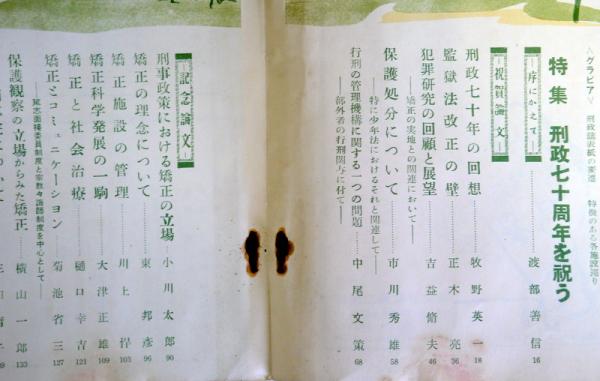 ＜グラビア＞ 刑政誌表紙の変遷 特徴のある各施設巡り
特集 刑政七十周年を祝う
―序にかえて― 渡部善信 16
祝賀論文
刑政七十年の回想 牧野英一 18
監獄法改正の壁 正木亮 36
犯罪研究の回顧と展望 吉益脩夫 46
―矯正の実地との関連において―
保護処分について 市川秀雄 58
―特に少年法におけるそれと関連して―
行刑の管理機構に関する一つの問題 中尾文策 68
―部外者の行刑関与に付て―
記念論文
刑事政策における矯正の立場 小川太郎 90
矯正の理念について 東邦彦 96
矯正施設の管理 川上悍 103
矯正科学発展の一駒 大津正雄 109
矯正と社会治療 樋口幸吉 121
矯正とコミュニケーション 菊池省三 127
―篤志面接委員制度と宗教々誨師制度を中心として―
保護観察の立場からみた矯正 横山一郎 133